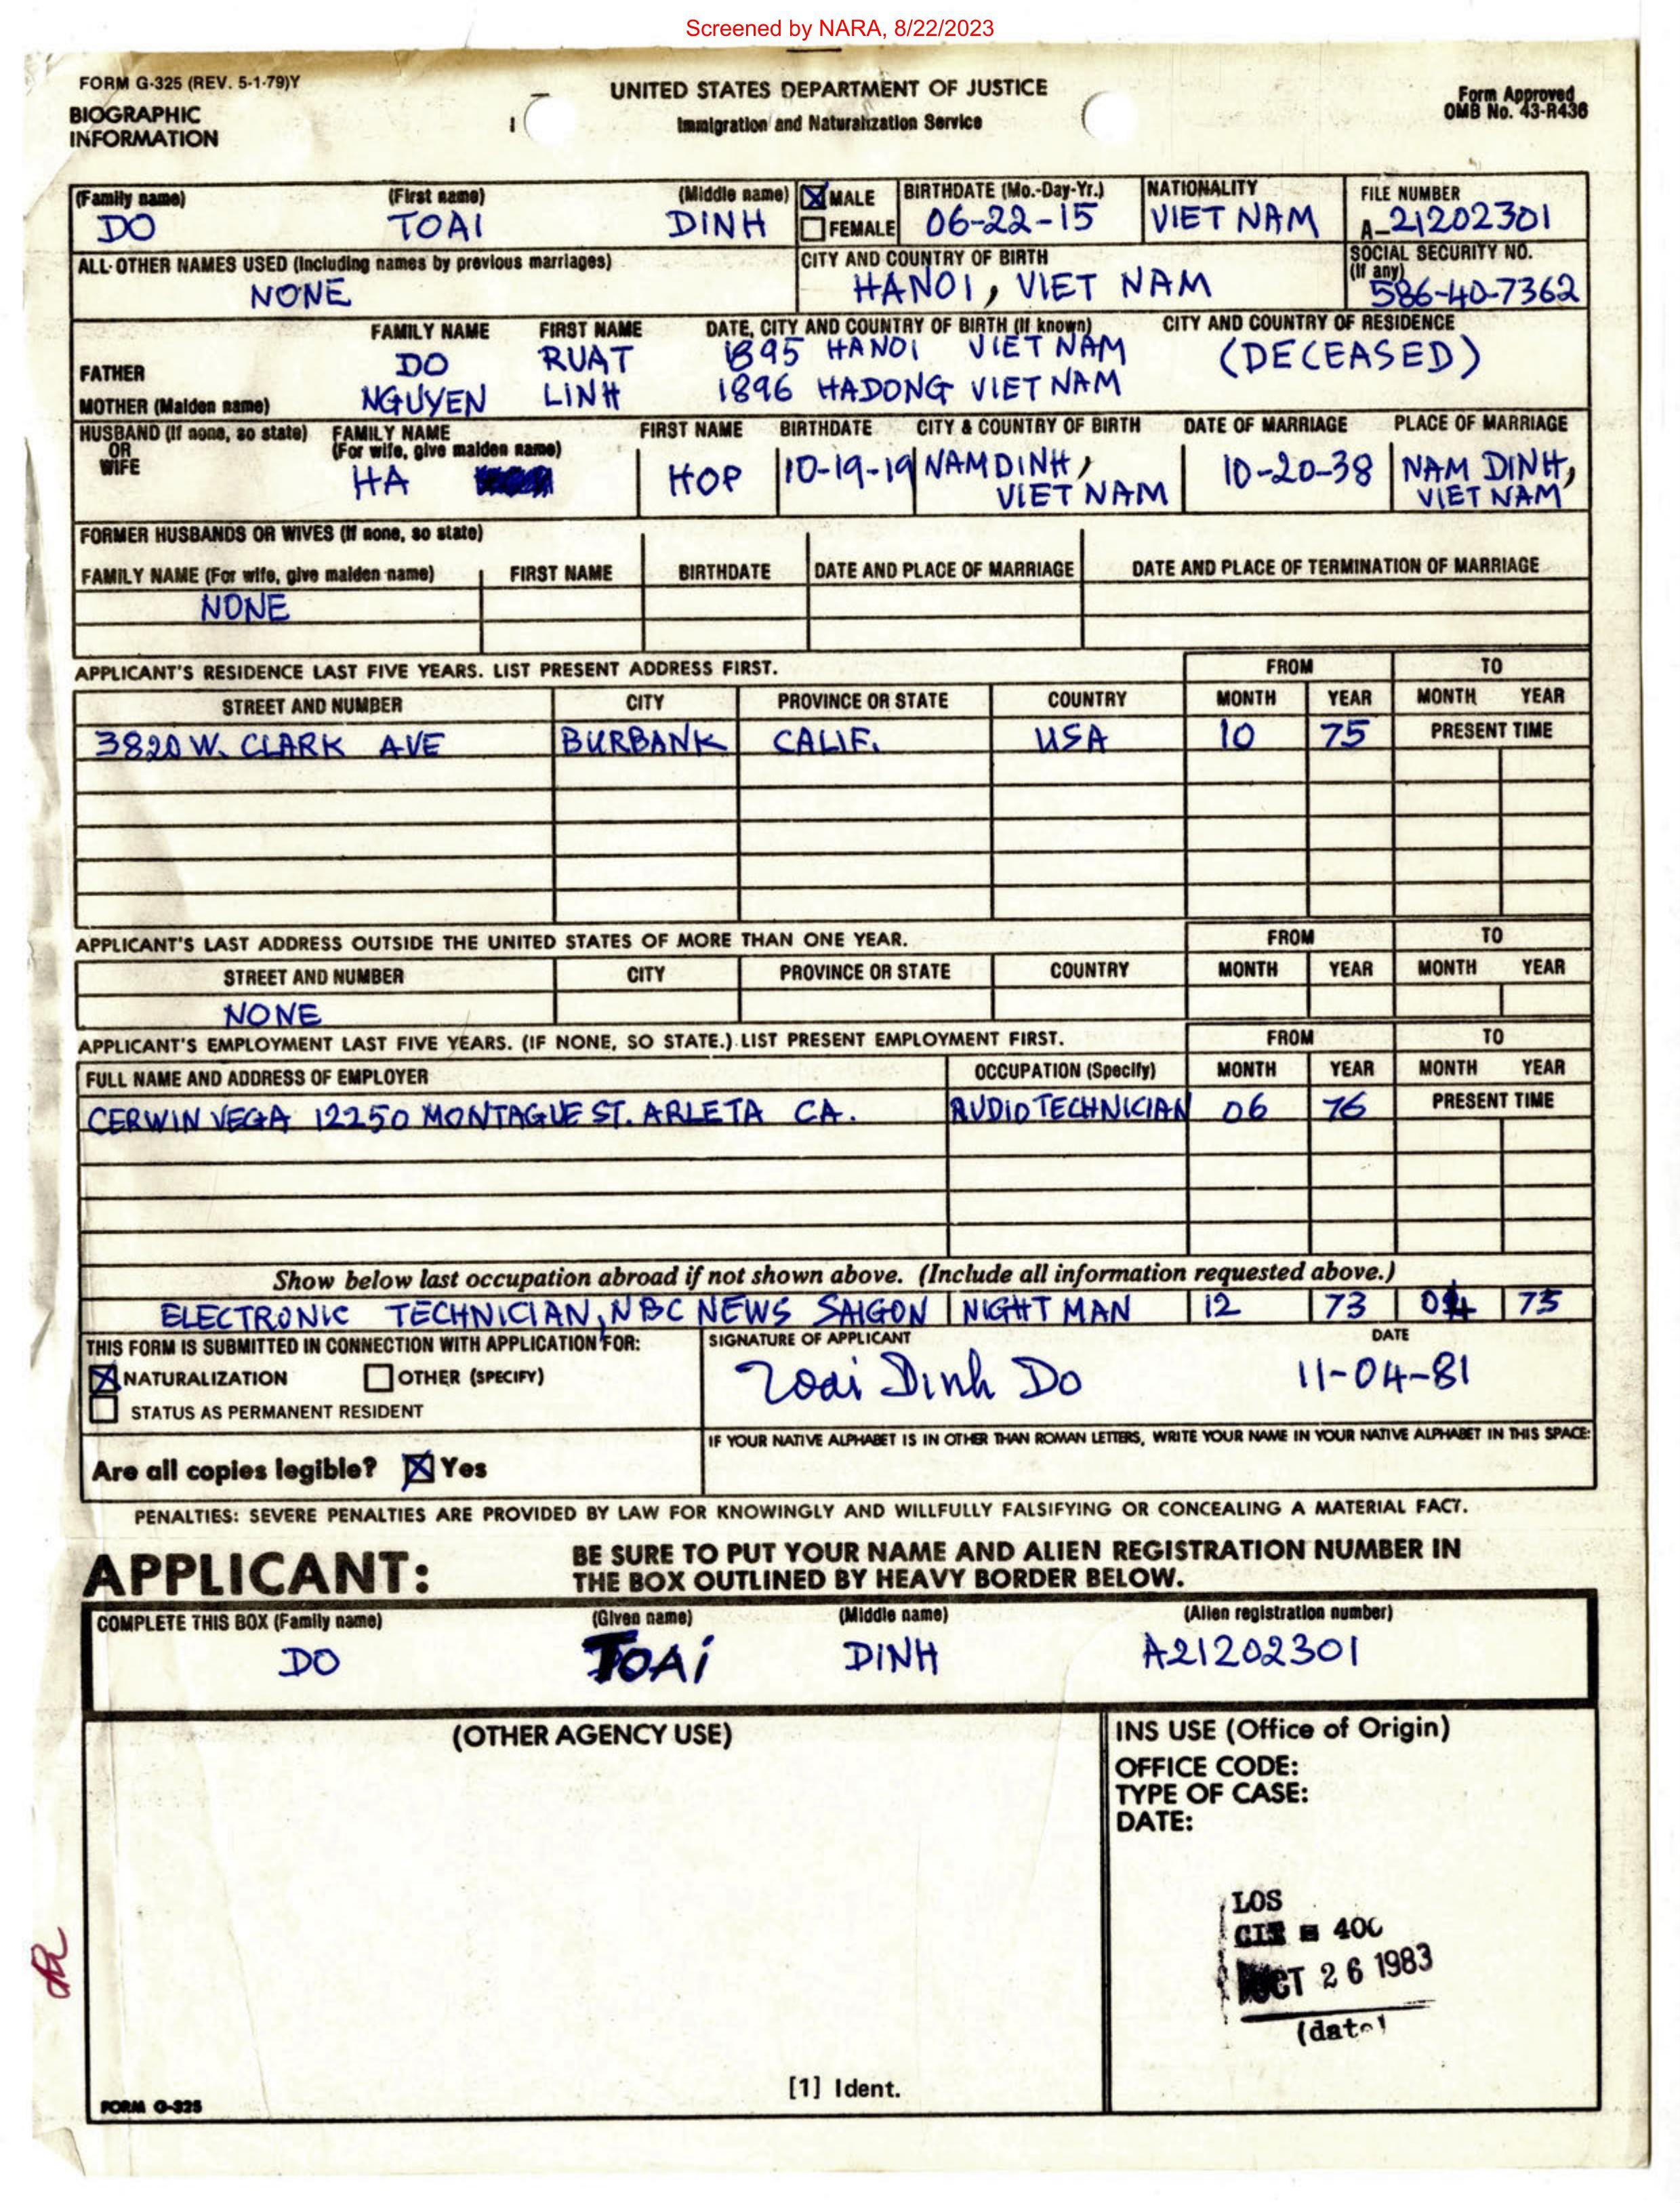 Screened by NARA, 8/22/2023
FORM G-325 (REV. 5-1-79)Y
BIOGRAPHIC
INFORMATION
UNITED STATES DEPARTMENT OF JUSTICE
Immigration and Naturalization Service
Form Approved
OMB No. 43-R436
(Family name) (First name) (Middle name) MALE BIRTHDATE (Mo.-Day-Yr.) NATIONALITY FILE NUMBER
DO TOAI DINH FEMALE 06-22-15 VIET NAM A-21202301
ALL OTHER NAMES USED (Including names by previous marriages) CITY AND COUNTRY OF BIRTH SOCIAL SECURITY NO.
(If any)
NONE HANOI, VIET NAM 586-40-7362
FAMILY NAME FIRST NAME DATE, CITY AND COUNTRY OF BIRTH (If known) CITY AND COUNTRY OF RESIDENCE
FATHER DO RUAT 1895 HANOI VIET NAM (DECEASED)
MOTHER (Maiden name) NGUYEN LINH 1896 HADONG VIET NAM
HUSBAND (If none, so state) FAMILY NAME FIRST NAME BIRTHDATE CITY & COUNTRY OF BIRTH DATE OF MARRIAGE PLACE OF MARRIAGE
OR (For wife, give maiden name)
WIFE HA HOP 10-19-19 NAMDINH, 10-20-38 NAM DINH,
VIET NAM VIET NAM
FORMER HUSBANDS OR WIVES (If none, so state)
FAMILY NAME (For wife, give maiden name) FIRST NAME BIRTHDATE DATE AND PLACE OF MARRIAGE DATE AND PLACE OF TERMINATION OF MARRIAGE
NONE
APPLICANT'S RESIDENCE LAST FIVE YEARS. LIST PRESENT ADDRESS FIRST. FROM TO
STREET AND NUMBER CITY PROVINCE OR STATE COUNTRY MONTH YEAR MONTH YEAR
3820 W. CLARK AVE BURBANK CALIF. USA 10 75 PRESENT TIME
APPLICANT'S LAST ADDRESS OUTSIDE THE UNITED STATES OF MORE THAN ONE YEAR. FROM TO
STREET AND NUMBER CITY PROVINCE OR STATE COUNTRY MONTH YEAR MONTH YEAR
NONE
APPLICANT'S EMPLOYMENT LAST FIVE YEARS. (IF NONE, SO STATE.) LIST PRESENT EMPLOYMENT FIRST. FROM TO
FULL NAME AND ADDRESS OF EMPLOYER OCCUPATION (Specify) MONTH YEAR MONTH YEAR
CERWIN VEGA 12250 MONTAGUE ST. ARLETA CA. AUDIO TECHNICIAN 06 76 PRESENT TIME
Show below last occupation abroad if not shown above. (Include all information requested above.)
ELECTRONIC TECHNICIAN, NBC NEWS SAIGON NIGHT MAN 12 73 04 75
THIS FORM IS SUBMITTED IN CONNECTION WITH APPLICATION FOR: SIGNATURE OF APPLICANT DATE
NATURALIZATION OTHER (SPECIFY) Toai Dinh Do 11-04-81
STATUS AS PERMANENT RESIDENT
IF YOUR NATIVE ALPHABET IS IN OTHER THAN ROMAN LETTERS, WRITE YOUR NAME IN YOUR NATIVE ALPHABET IN THIS SPACE:
Are all copies legible? Yes
PENALTIES: SEVERE PENALTIES ARE PROVIDED BY LAW FOR KNOWINGLY AND WILLFULLY FALSIFYING OR CONCEALING A MATERIAL FACT.
APPLICANT: BE SURE TO PUT YOUR NAME AND ALIEN REGISTRATION NUMBER IN
THE BOX OUTLINED BY HEAVY BORDER BELOW.
COMPLETE THIS BOX (Family name) (Given name) (Middle name) (Alien registration number)
DO TOAi DINH A21202301
(OTHER AGENCY USE) INS USE (Office of Origin)
OFFICE CODE:
TYPE OF CASE:
DATE:
LOS
400
OCT 26 1983
(date)
[1] Ident.
FORM G-325